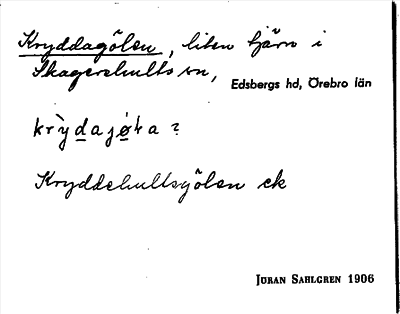 Kryddagölen, liten tjärn i
Skagershults sn,
Edsbergs hd, Örebro län
Kryddehultsgölen ek
JÖRAN SAHLGREN 1906